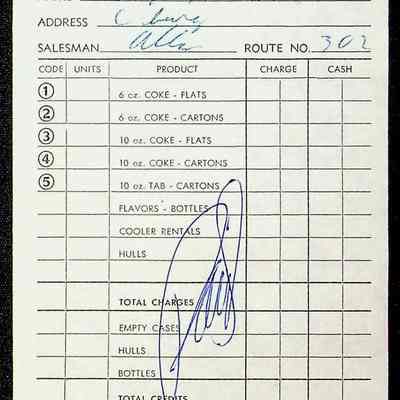 ADDRESS C burg
SALESMAN Allen ROUTE NO. 302
CODE UNITS PRODUCT CHARGE CASH
① 6 oz. COKE - FLATS
② 6 oz. COKE - CARTONS
③ 10 oz. COKE - FLATS
④ 10 oz. COKE - CARTONS
⑤ 10 oz. TAB - CARTONS
FLAVORS - BOTTLES
COOLER RENTALS
HULLS
TOTAL CHARGES
EMPTY CASES
HULLS
BOTTLES
TOTAL CREDITS